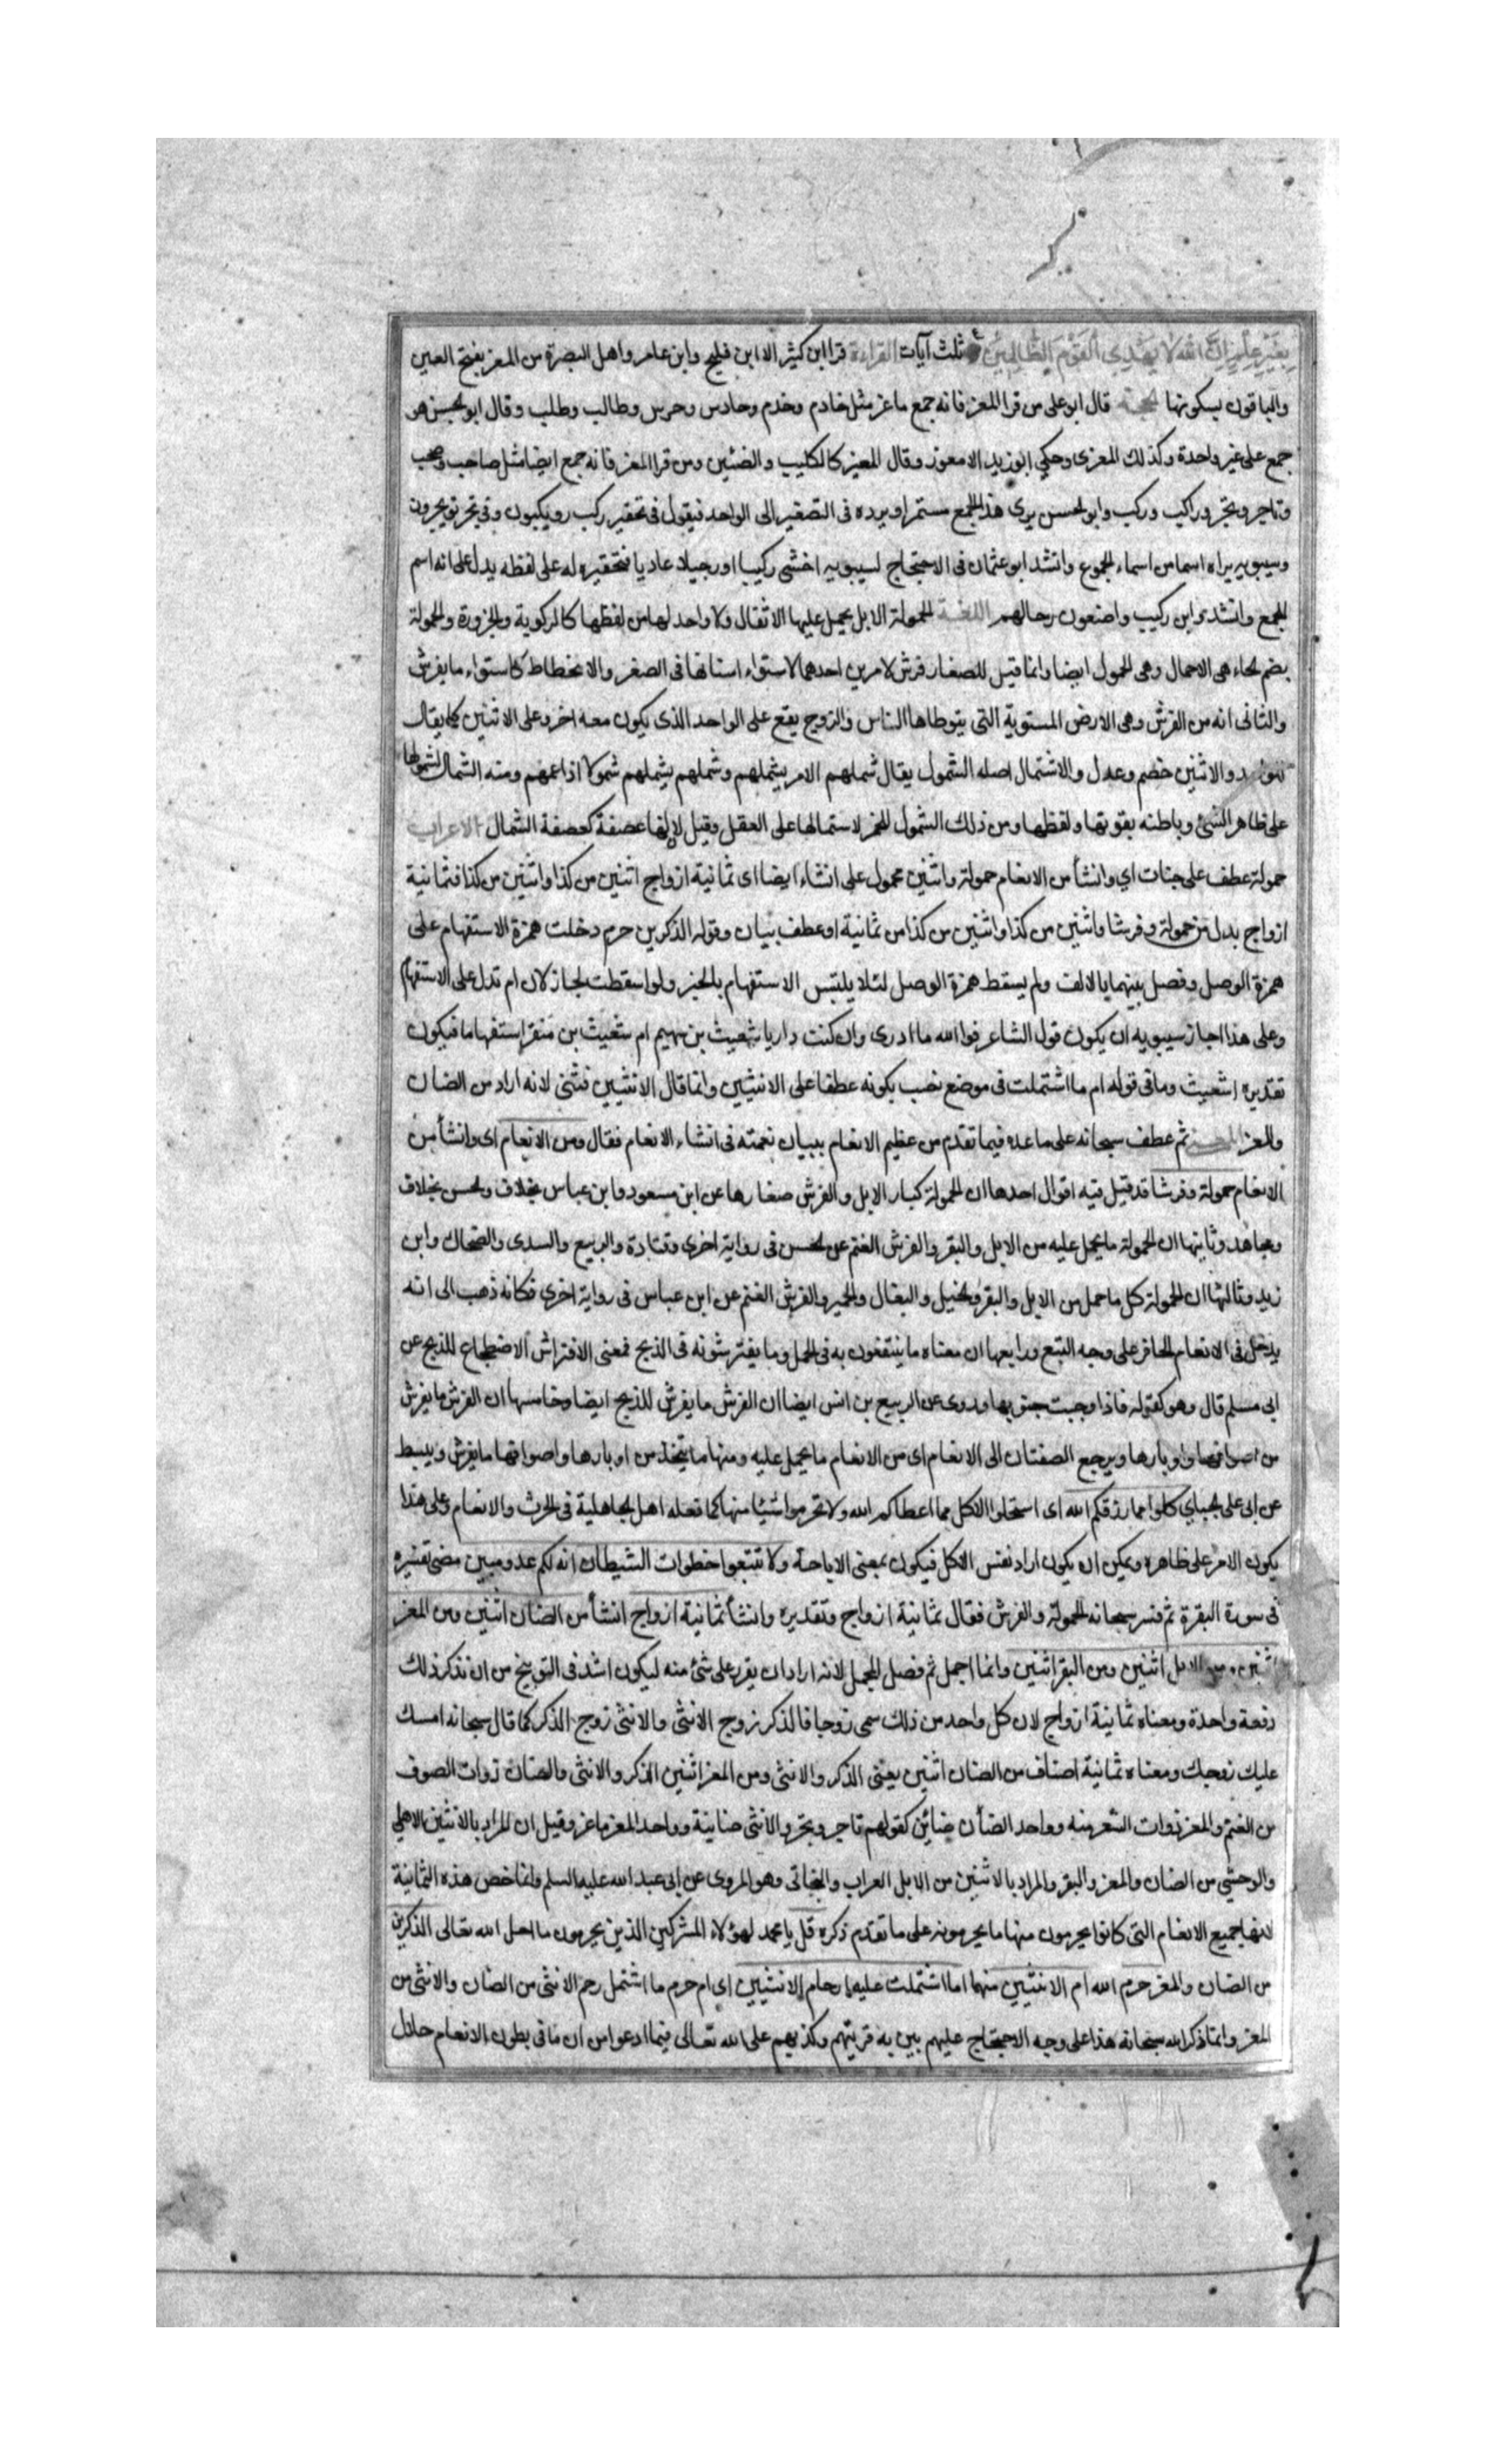 بِغَيْرِ عِلْمٍ إِنَّ اللَّهَ لَا يَهْدِي الْقَوْمَ الظَّالِمِينَ ثلث آيات القراءة قرا ابن كثير الا ابن فليح وابن عامر واهل البصرة من المعز بفتح العين
والباقون بسكونها الحجة قال ابو على من قرا المعز فانه جمع ماعز مثل خادم وخدم وحارس وحرس وطالب وطلب وقال ابو الحسن هو
جمع على غير واحدة وكذلك المعزى وحكي ابو زيد الامعوز وقال المعيز كالكليب والضئين ومن قرا المعز فانه جمع ايضا مثل صاحب وصحب
وتاجر وتجر وراكب وركب وابو الحسن يرى هذا الجمع مستمرا ويرده فى التصغير الى الواحد فيقول فى تحقير ركب رويكبون وفى تجر تويجرون
وسيبويه يراه اسما من اسماء الجموع وانشد ابو عثمان فى الاحتجاج لسيبويه اخشى ركيبا او رجيلا عاديا فتحقيره له على لفظه يدل على انه اسم
للجمع وانشد واين ركيب واضعون رحالهم اللغة الحمولة الابل يحمل عليها الاثقال ولا واحد لها من لفظها كالركوبة والجزورة والحمولة
بضم الحاء هى الاحمال وهى الحمول ايضا وانما قيل للصغار فرش لامرين احدهما لاستواء اسنانها فى الصغر والانحطاط كاستواء ما يفرش
والثانى انه من الفرش وهى الارض المستوية التى يتوطاها الناس والزوج يقع على الواحد الذى يكون معه اخر وعلى الاثنين كما يقال
والاثنين خصم وعدل والاشتمال اصله الشمول يقال شملهم الامر يشملهم وشملهم يشملهم شمولا اذا عمهم ومنه الشمال لشمولها
على ظاهر الشئ وباطنه بقوتها ولفظها ومن ذلك الشمول للخمر لاستمالها على العقل وقيل لانها عصفة كعصفة الشمال الاعراب
حمولة عطف على جنات اي وانشأ من الانعام حمولة واثنين محمول على انشاء ايضا اى ثمانية ازواج اثنين من كذا واثنين من كذا فثمانية
ازواج بدل من حمولة وفرشا واثنين من كذا واثنين من كذا من ثمانية او عطف بيان وقوله الذكرين حرم دخلت همزة الاستفهام على
همزة الوصل وفصل بينهما بالالف ولم يسقط همزة الوصل لئلا يلتبس الاستفهام بالخبر ولو اسقطت لجاز لان ام تدل على الاستفهام
وعلى هذا اجاز سيبويه ان يكون قول الشاعر فوالله ما ادرى وان كنت داريا شعيث بن سهيم ام شعيث بن منقر استفهاما فيكون
تقديره اشعيث وما فى قوله ام ما اشتملت فى موضع نصب بكونه عطفا على الانثيين وانما قال الانثيين فثنى لانه اراد من الضان
والمعز ثم عطف سبحانه على ما عده فيما تقدم من عظيم الانعام ببيان نعمته فى انشاء الانعام فقال ومن الانعام اى وانشأ من
الانعام حمولة وفرشا قد قيل فيه اقوال احدها ان الحمولة كبار الابل والفرش صغارها عن ابن مسعود وابن عباس بخلاف والحسن بخلاف
ومجاهد وثانيها ان الحمولة ما يحمل عليه من الابل والبقر والفرش الغنم عن الحسن فى رواية اخرى وقتادة والربيع والسدى والضحاك وابن
زيد وثالثها ان الحمولة كل ما حمل من الابل والبقر والخيل والبغال والحمير والفرش الغنم عن ابن عباس فى رواية اخرى فكانه ذهب الى انه
يدخل فى الانعام الحافر على وجه التبع ورابعها ان معناه ما ينتفعون به فى الحمل وما يفترشونه فى الذبح فمعنى الافتراش الاضطجاع للذبح عن
ابى مسلم قال وهو كقوله فاذا وجبت جنوبها وروى عن الربيع بن انس ايضا ان الفرش ما يفرش للذبح ايضا وخامسها ان الفرش ما يفرش
من اصوافها واوبارها ويرجع الصفتان الى الانعام اى من الانعام ما يحمل عليه ومنها ما يتخذ من اوبارها واصوافها ما يفرش ويبسط
عن ابى على الجبايي كلوا مما رزقكم الله اى استحلوا الاكل مما اعطاكم الله ولا تحرموا شيئا منها كما فعله اهل الجاهلية فى الحرث والانعام وعلى هذا
يكون الامر على ظاهره ويمكن ان يكون اراد نفس الاكل فيكون بمعنى الاباحة ولا تتبعوا خطوات الشيطان انه لكم عدو مبين مضى تفسيره
فى سورة البقرة ثم فسر سبحانه الحمولة والفرش فقال ثمانية ازواج وتقديره وانشأ ثمانية ازواج انشأ من الضان اثنين ومن المعز
اثنين ومن الابل اثنين ومن البقر اثنين وانما اجمل ثم فصل المجمل لانه اراد ان يقرر على شئ منه ليكون اشد فى التوبيخ من ان تذكر ذلك
دفعة واحدة ومعناه ثمانية ازواج لان كل واحد من ذلك سمى زوجا فالذكر زوج الانثى والانثى زوج الذكر كما قال سبحانه امسك
عليك زوجك ومعناه ثمانية اصناف من الضان اثنين يعنى الذكر والانثى ومن المعز اثنين الذكر والانثى والضان ذوات الصوف
من الغنم والمعز ذوات الشعر منه وواحد الضأن ضائن كقولهم تاجر وتجر والانثى ضانية وواحد المعز ماعز وقيل ان المراد بالاثنين الاهلي
والوحشي من الضان والمعز والبقر والمراد بالاثنين من الابل العراب والبخاتى وهو المروى عن ابى عبد الله عليه السلم وانما خص هذه الثمانية
لانها جميع الانعام التى كانوا يحرمون منها ما يحرمونه على ما تقدم ذكره قل يا محمد لهؤلاء المشركين الذين يحرمون ما احل الله تعالى الذكرين
من الضان والمعز حرم الله ام الانثيين منهما اما اشتملت عليه ارحام الانثيين اى ام حرم ما اشتمل رحم الانثى من الضان والانثى من
المعز وانما ذكر الله سبحانه هذا على وجه الاحتجاج عليهم بين به فريتهم وكذبهم على الله تعالى فيما ادعوا من ان ما فى بطون الانعام حلال